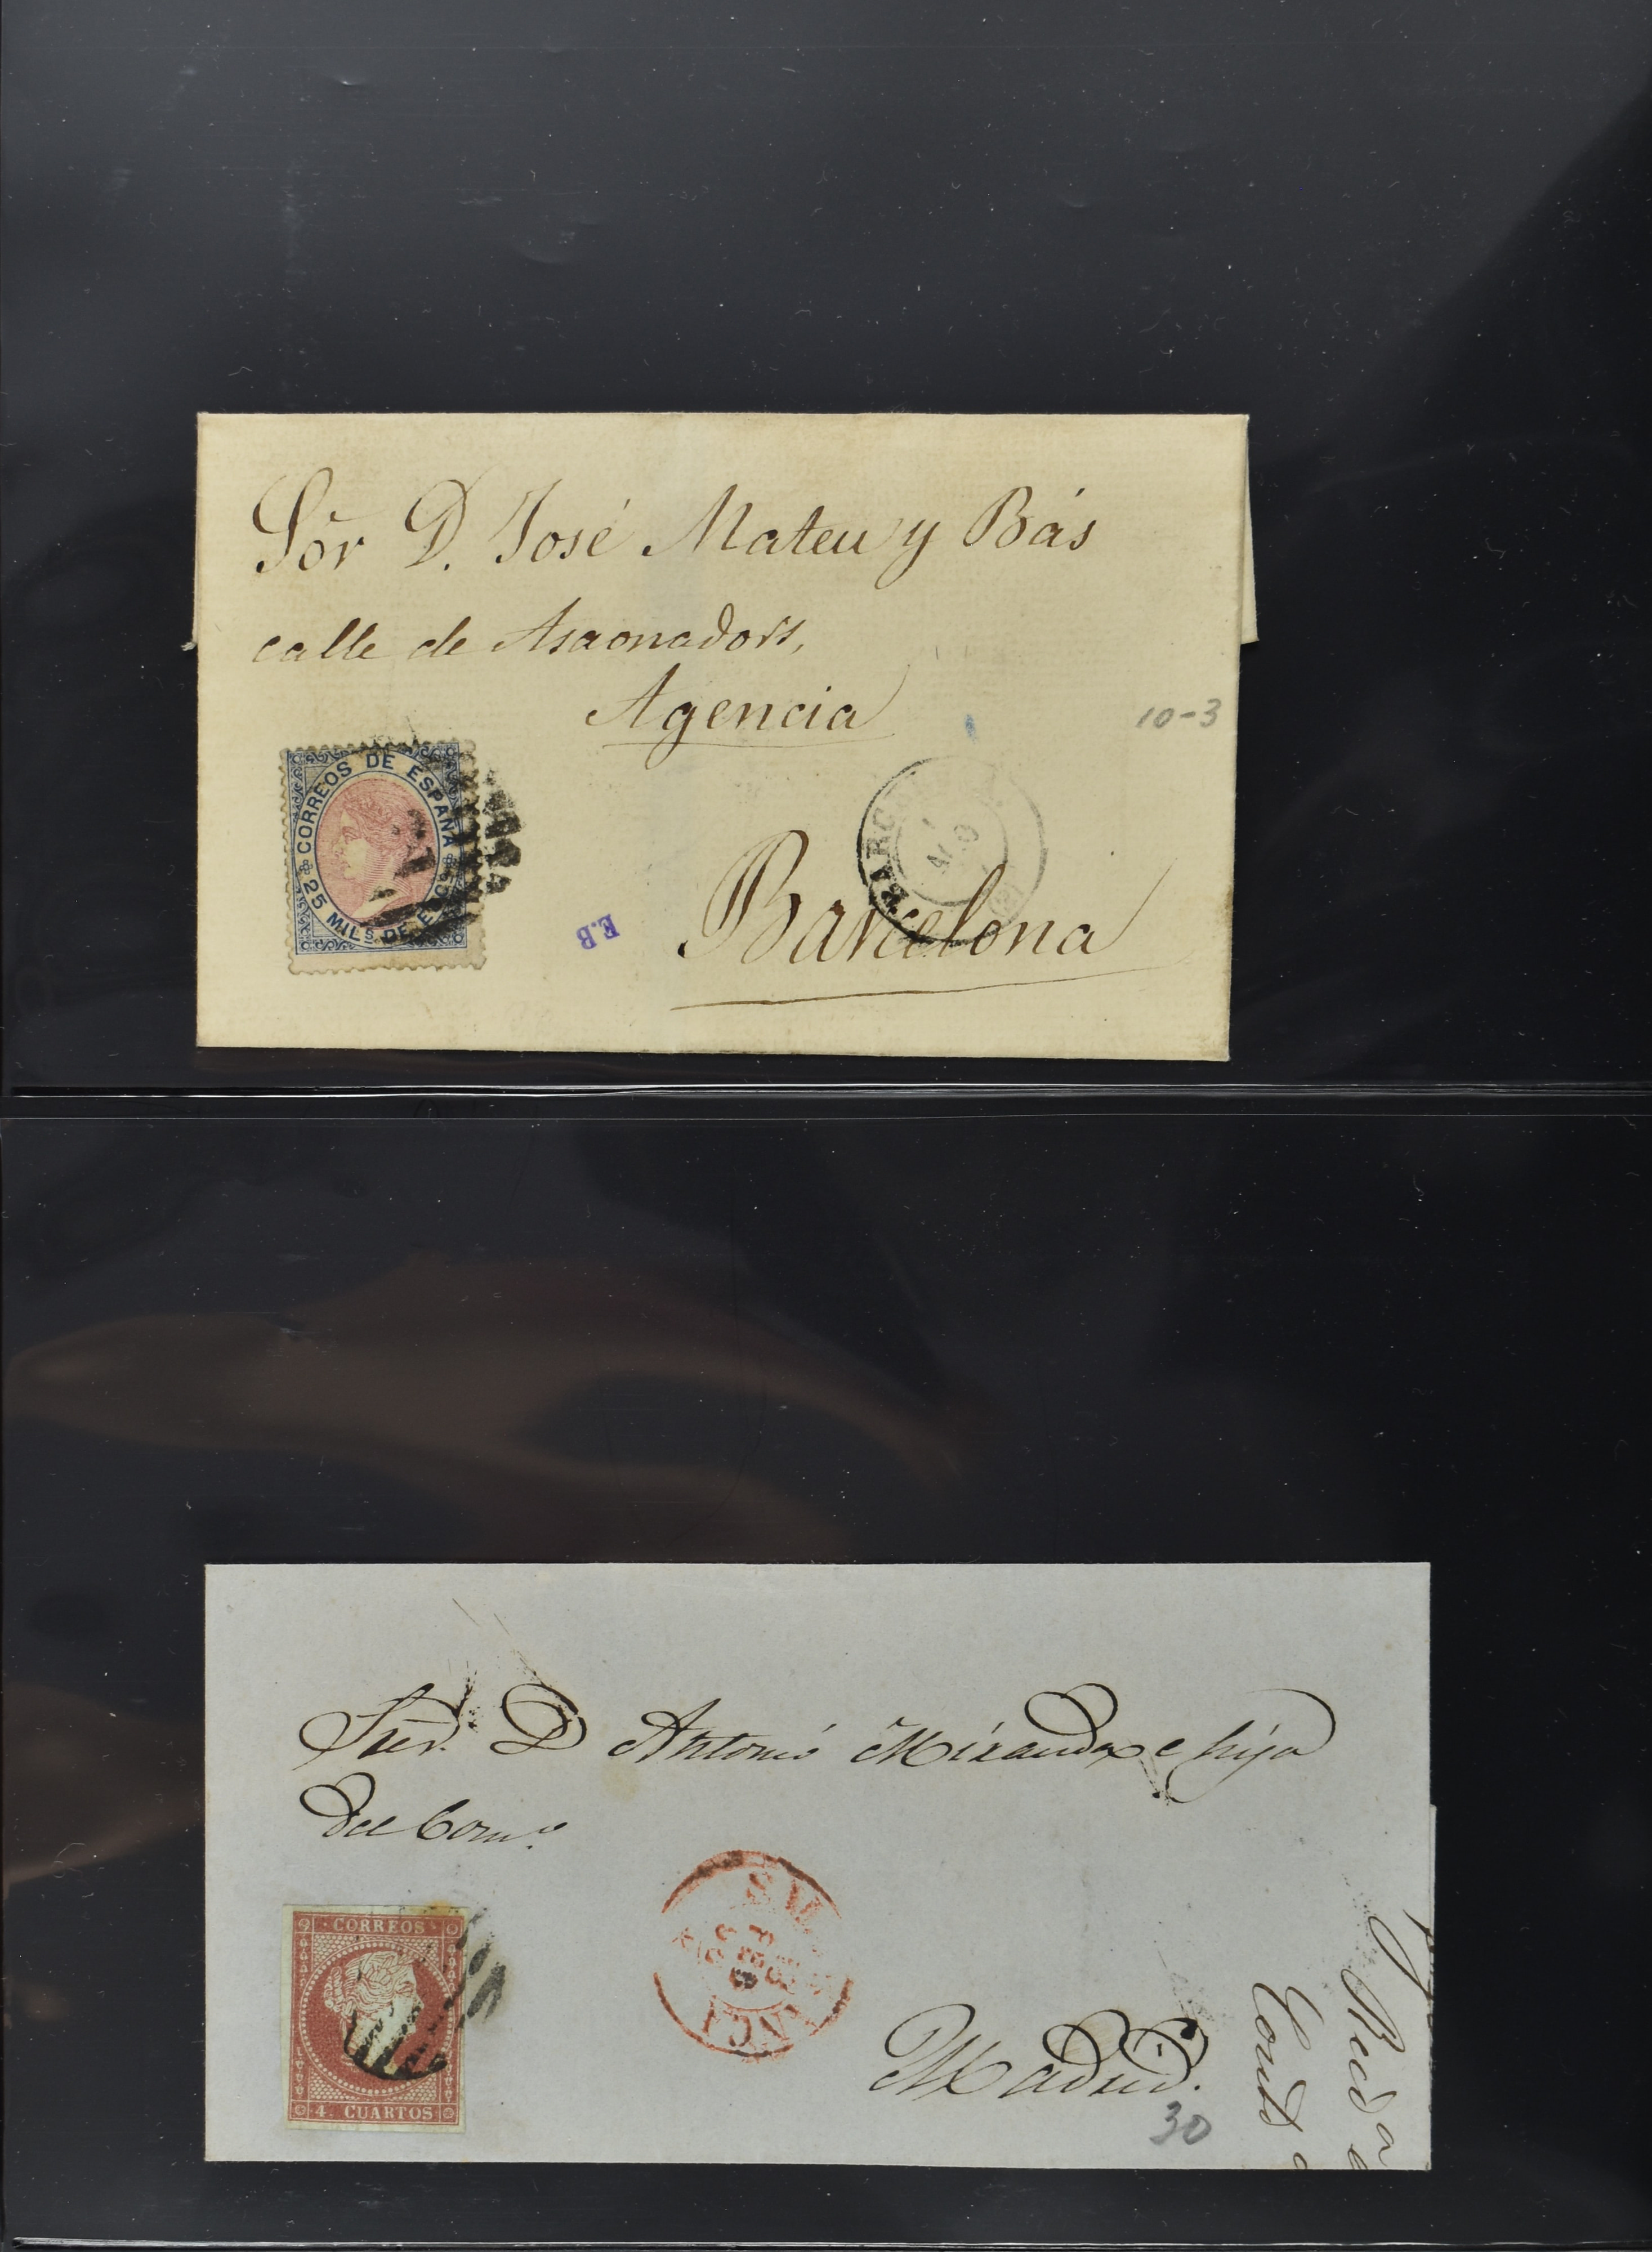 Sõr D. José Mateu y Bás
calle de Asaonadors,
Agencia
10-3
CORREOS DE ESPAÑA
25 MILS. DE ESCO
BARC
E.B
Barcelona
Sres. D Antonio Miranda e hijo
del Comº
CORREOS
4 CUARTOS
Madrid.
30